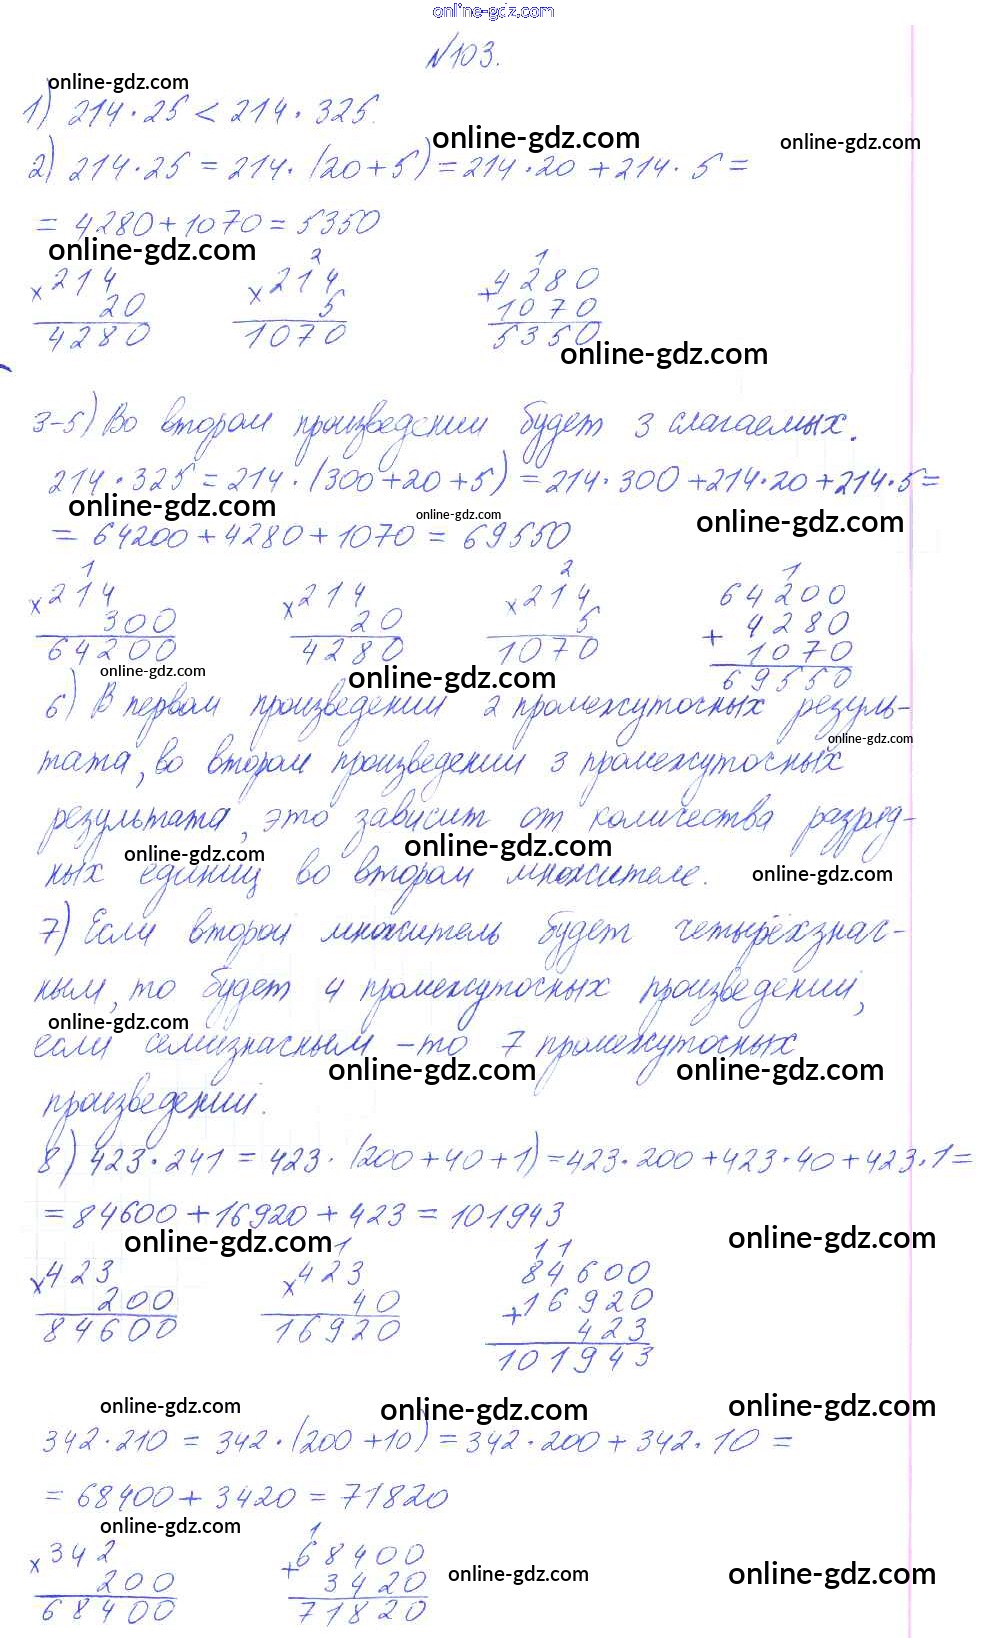 online-gdz.com
№103.
online-gdz.com
1) 214·25 < 214·325.
online-gdz.com
online-gdz.com
2) 214·25 = 214·(20+5) = 214·20 + 214·5 =
= 4280 + 1070 = 5350
online-gdz.com
2 1
×214 ×214 4280
20 5 +1070
4280 1070 5350
online-gdz.com
3-5) Во втором произведении будет 3 слагаемых.
214·325 = 214·(300+20+5) = 214·300 + 214·20 + 214·5 =
online-gdz.com
online-gdz.com
online-gdz.com
= 64200 + 4280 + 1070 = 69550
1 2 1
×214 ×214 ×214 64200
300 20 5 + 4280
64200 4280 1070 1070
69550
online-gdz.com
online-gdz.com
6) В первом произведении 2 промежуточных резуль-
online-gdz.com
тата, во втором произведении 3 промежуточных
результата, это зависит от количества разряд-
online-gdz.com
online-gdz.com
ных единиц во втором множителе.
online-gdz.com
7) Если второй множитель будет четырёхзнач-
ным, то будет 4 промежуточных произведений,
online-gdz.com
если семизначным - то 7 промежуточных
online-gdz.com
online-gdz.com
произведений.
8) 423·241 = 423·(200+40+1) = 423·200 + 423·40 + 423·1 =
= 84600 + 16920 + 423 = 101943
online-gdz.com
online-gdz.com
1 11
×423 ×423 84600
200 40 +16920
84600 16920 423
101943
online-gdz.com
online-gdz.com
online-gdz.com
342·210 = 342·(200+10) = 342·200 + 342·10 =
= 68400 + 3420 = 71820
online-gdz.com
1
×342 +68400
200 3420
68400 71820
online-gdz.com
online-gdz.com